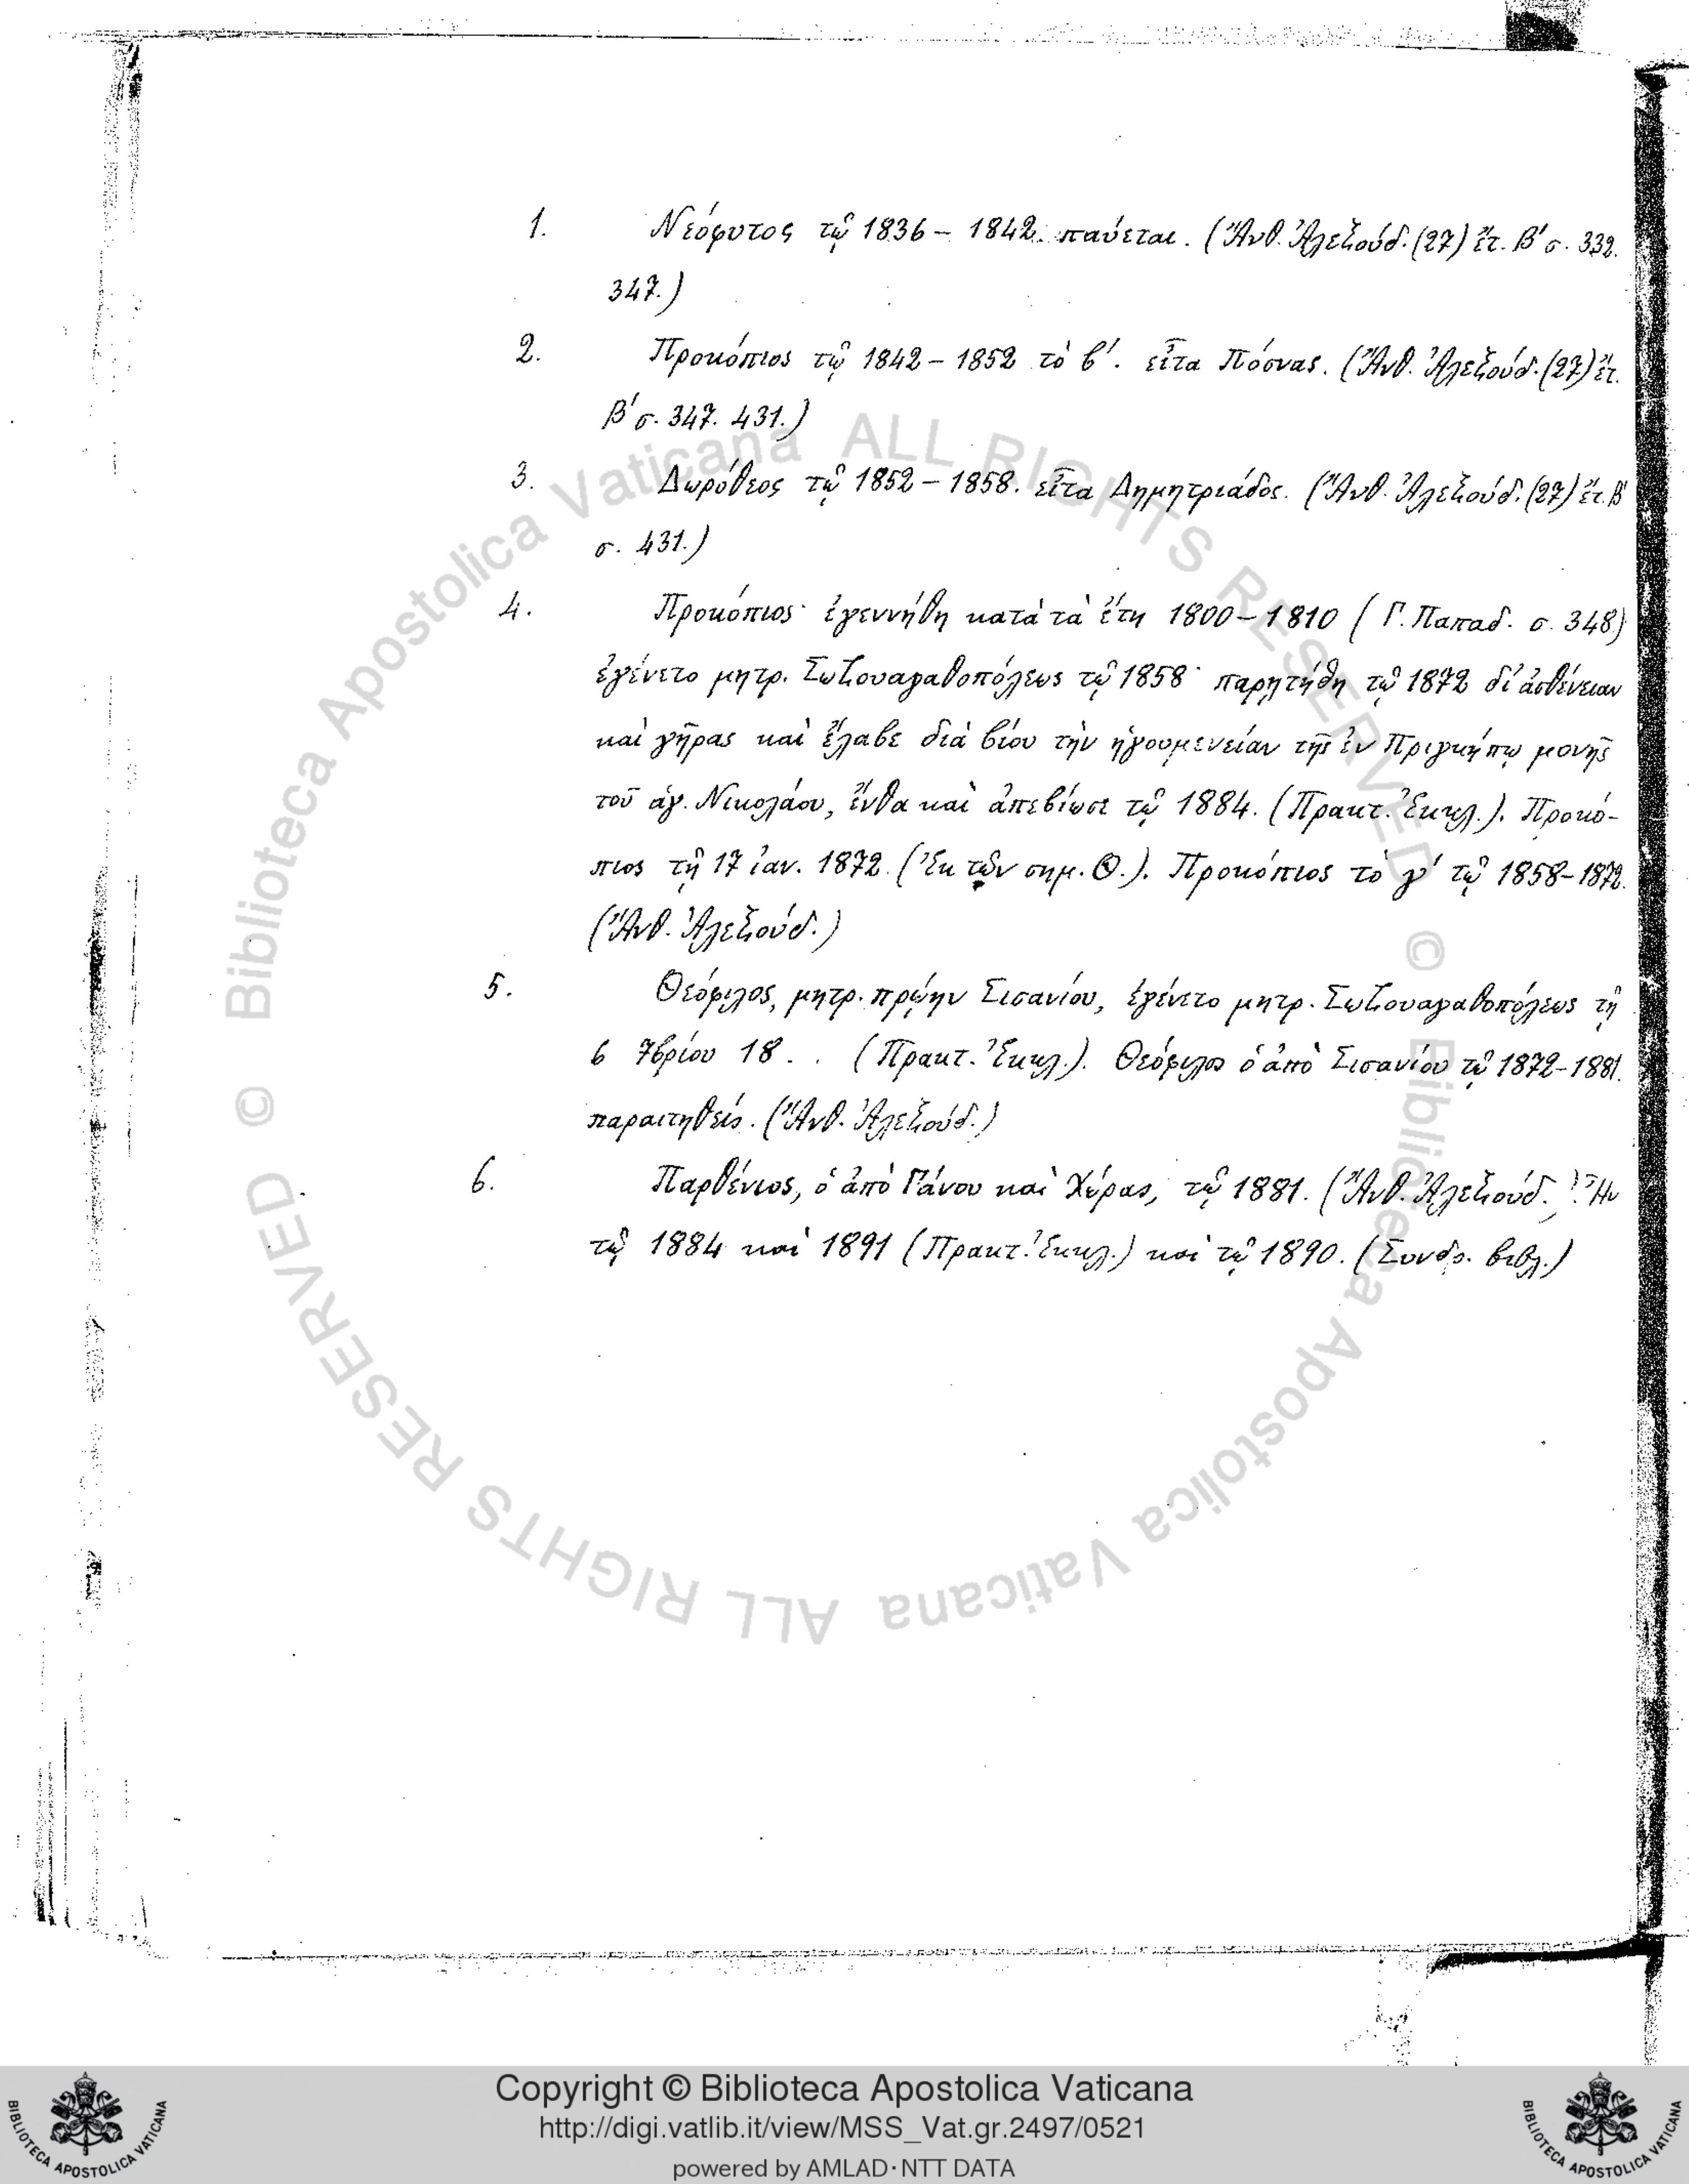 1. Νεόφυτος τῷ 1836 – 1842. παύεται. (Ἄνθ. Ἀλεξούδ. (27) ἔτ. Β′ σ. 332.
347.)
2. Προκόπιος τῷ 1842 – 1852 τὸ β′. εἶτα Πόσνας. (Ἄνθ. Ἀλεξούδ. (27) ἔτ.
Β′ σ. 347. 431.)
3. Δωρόθεος τῷ 1852 – 1858. εἶτα Δημητριάδος. (Ἄνθ. Ἀλεξούδ. (27) ἔτ. Β′
σ. 431.)
4. Προκόπιος· ἐγεννήθη κατὰ τὰ ἔτη 1800 – 1810 (Γ. Παπαδ. σ. 348)
ἐγένετο μητρ. Σωζουαγαθοπόλεως τῷ 1858· παρῃτήθη τῷ 1872 δι' ἀσθένειαν
καὶ γῆρας καὶ ἔλαβε διὰ βίου τὴν ἡγουμενείαν τῆς ἐν Πριγκήπῳ μονῆς
τοῦ ἁγ. Νικολάου, ἔνθα καὶ ἀπεβίωσε τῷ 1884. (Πρακτ. Ἐκκλ.). Προκό-
πιος τῇ 17 ἰαν. 1872. (Ἐκ τῶν σημ. Θ.). Προκόπιος τὸ γ′ τῷ 1858–1872.
(Ἄνθ. Ἀλεξούδ.)
5. Θεόφιλος, μητρ. πρῴην Σισανίου, ἐγένετο μητρ. Σωζουαγαθοπόλεως τῇ
6 7βρίου 18 . . (Πρακτ. Ἐκκλ.). Θεόφιλος ὁ ἀπὸ Σισανίου τῷ 1872–1881.
παραιτηθείς. (Ἄνθ. Ἀλεξούδ.)
6. Παρθένιος, ὁ ἀπὸ Γάνου καὶ Χώρας, τῷ 1881. (Ἄνθ. Ἀλεξούδ.). Ἦν
τῷ 1884 καὶ 1891 (Πρακτ. Ἐκκλ.) καὶ τῷ 1890. (Συνδρ. βιβλ.)
© Biblioteca Apostolica Vaticana ALL RIGHTS RESERVED
© Biblioteca Apostolica Vaticana ALL RIGHTS RESERVED
BIBLIOTECA APOSTOLICA VATICANA
Copyright © Biblioteca Apostolica Vaticana
http://digi.vatlib.it/view/MSS_Vat.gr.2497/0521
powered by AMLAD·NTT DATA
BIBLIOTECA APOSTOLICA VATICANA